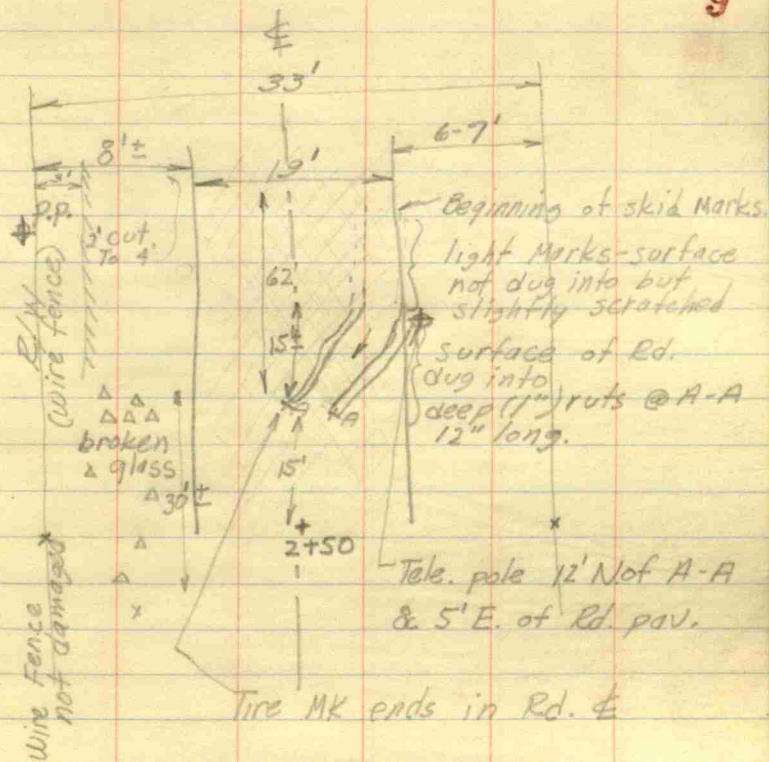 9
℄
33'
8'±
19'
6-7'
P.P.
2' cut
To 4'
R/W
(wire fence)
62'
15'±
Beginning of skid Marks.
light Marks-surface
not dug into but
slightly scratched
surface of Rd.
dug into
deep (1") ruts @ A-A
12" long.
A
A
broken
glass
30'±
15'
2+50
Tele. pole 12' N of A-A
& 5' E. of Rd. pav.
Wire Fence
not damaged
Tire MK ends in Rd. ℄